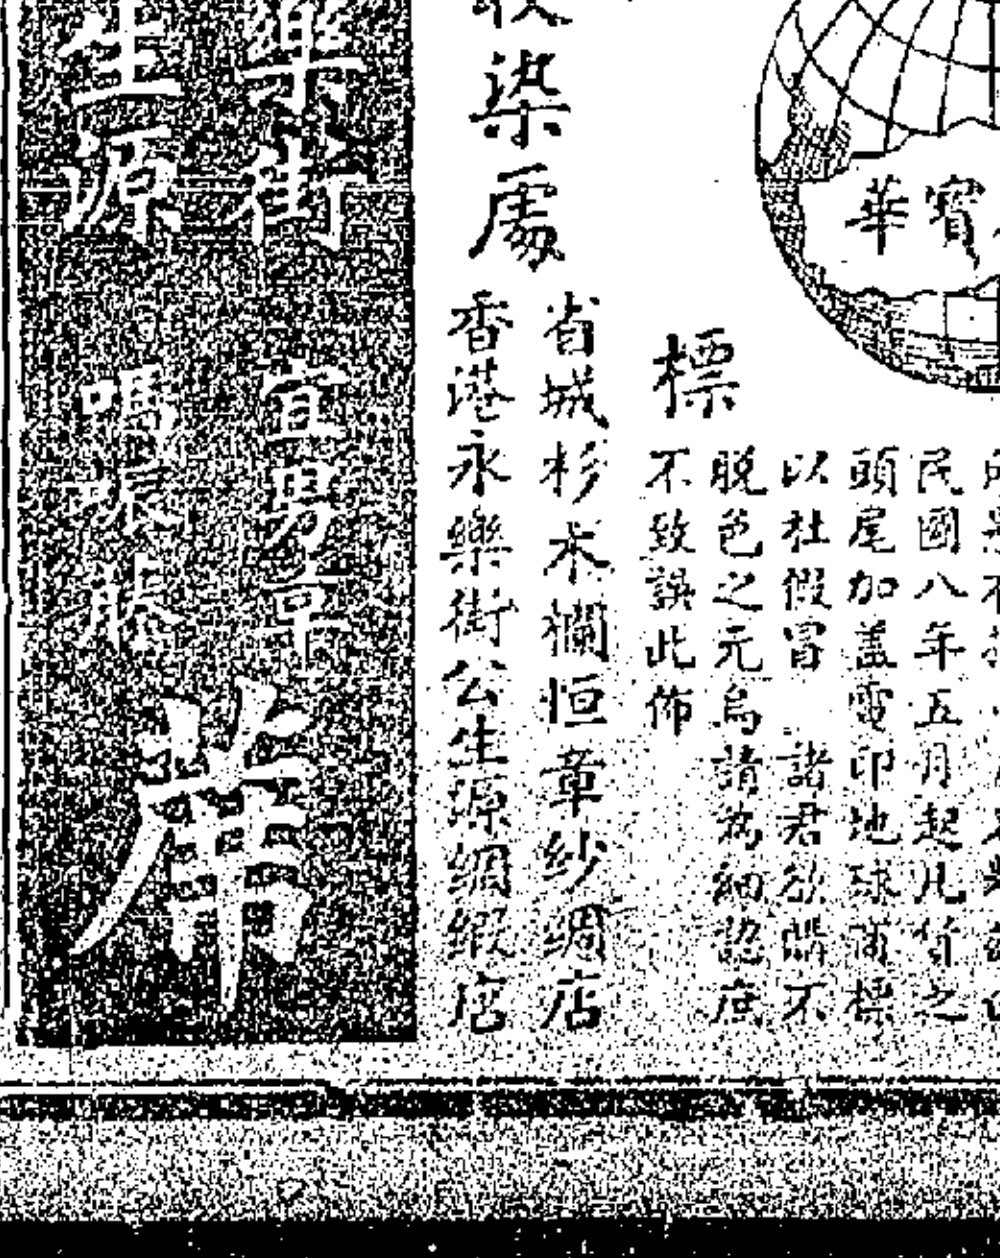 華寶
民國八年五月起凡貨之
頭尾加盖電印地球商標
以杜假冒 諸君欲購不
脱色之元烏請為細認庶
不致誤此佈
標
收染處
省城杉木欄恒章紗綢店
香港永樂街公生源綢緞店
樂街
生源
宜男草
席